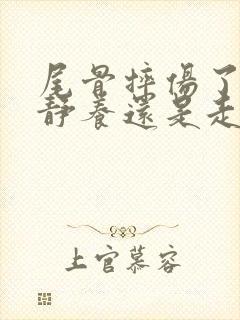 尾骨摔傷了
靜養還是走
上官慕容